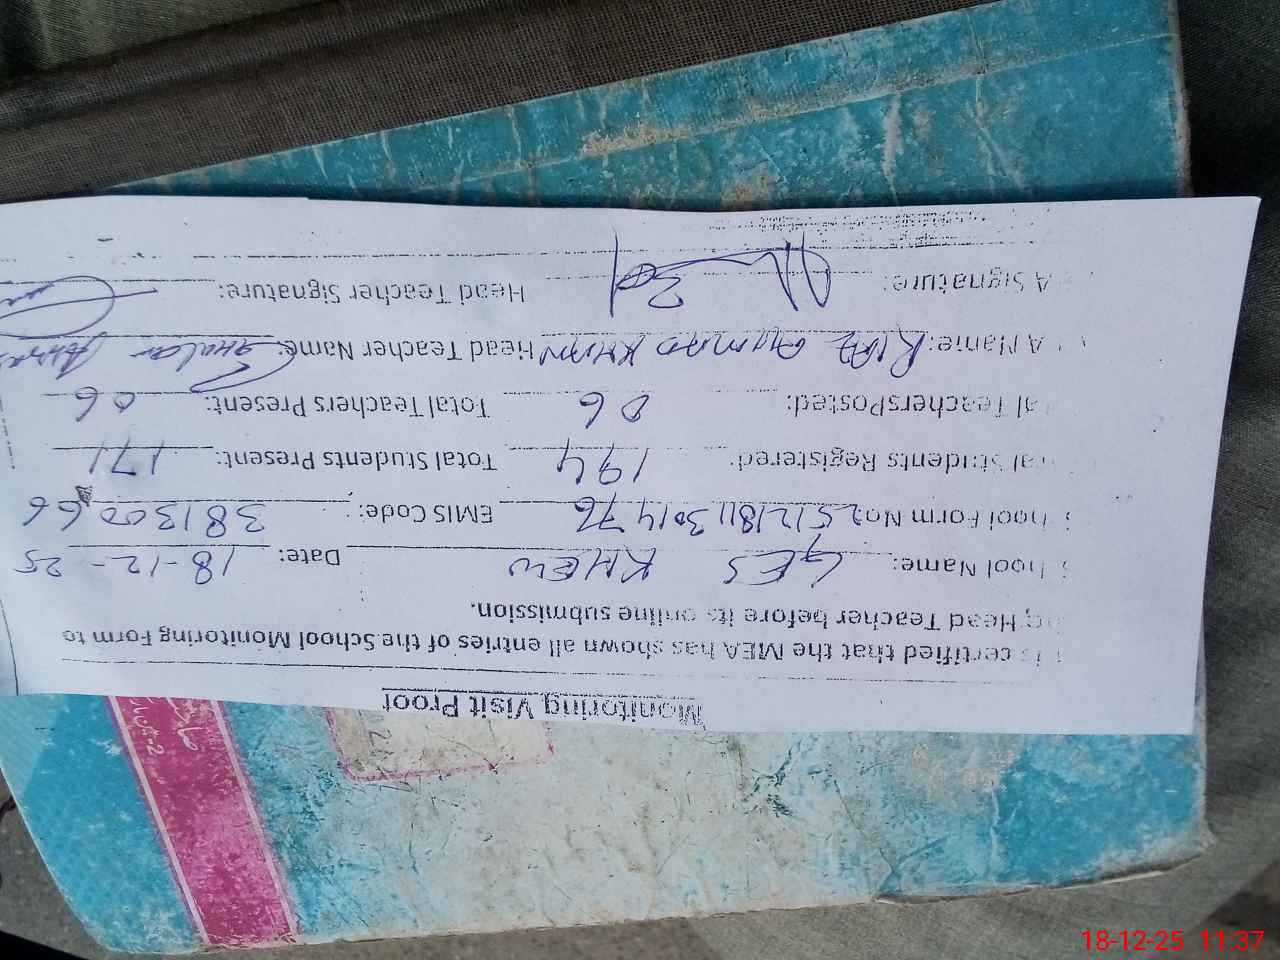 Monitoring Visit Proof
is certified that the MEA has shown all entries of the School Monitoring Form to
Head Teacher before its online submission.
hool Name: GES KHEW Date: 18-12-25
hool Form No: 25121811301476 EMIS Code: 38130066
al Students Registered: 194 Total Students Present: 171
al Teachers Posted: 06 Total Teachers Present: 06
A Name: RIAZ AHMAD KHAN Head Teacher Name: Ghulam
A Signature: Head Teacher Signature:
18-12-25 11:37